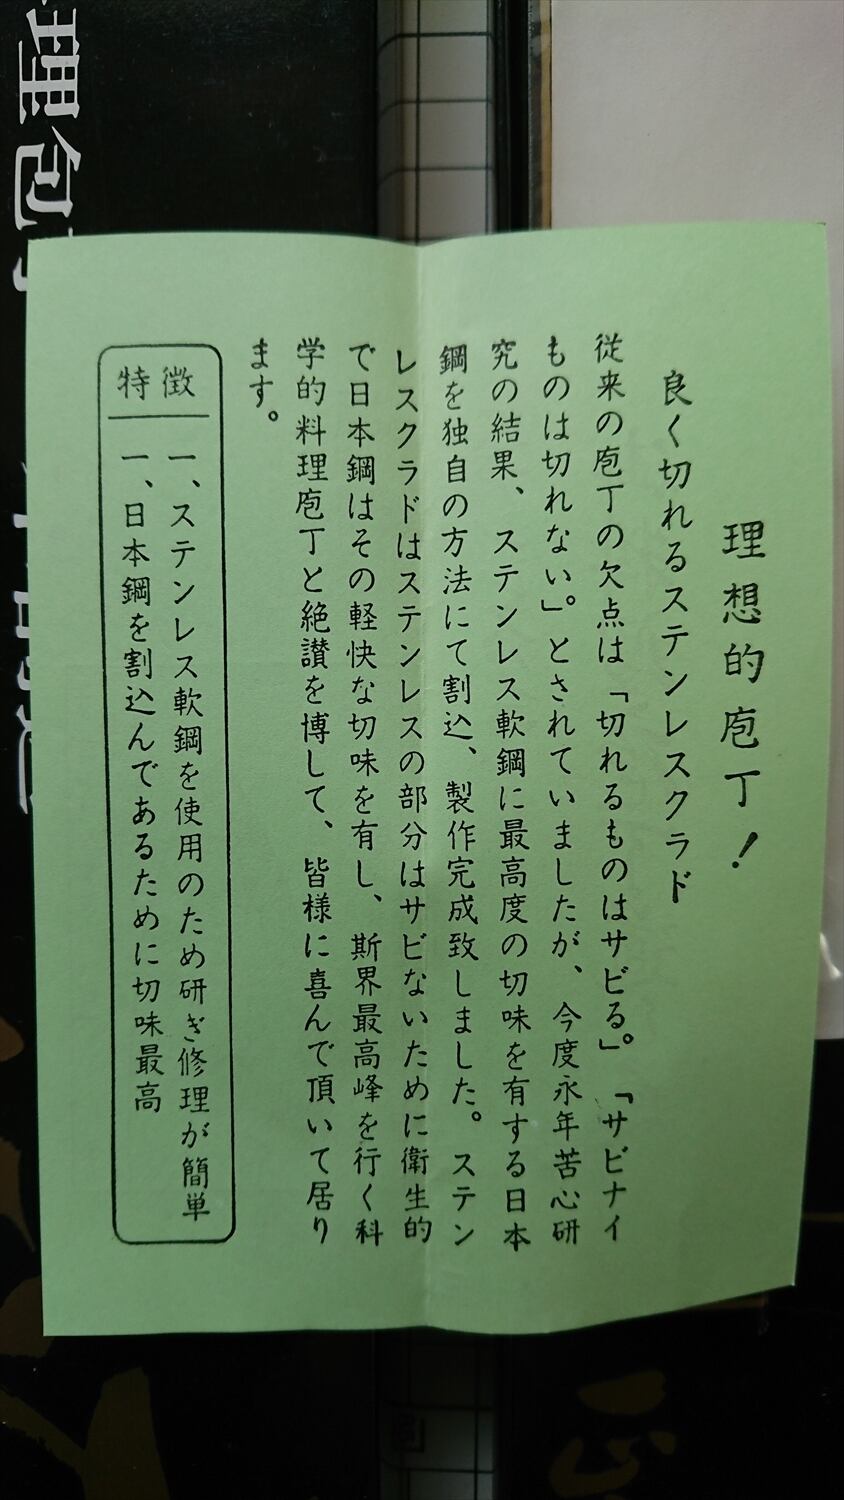 理想的庖丁！
良く切れるステンレスクラド
従来の庖丁の欠点は「切れるものはサビる」。「サビナイ
ものは切れない」。とされていましたが、今度永年苦心研
究の結果、ステンレス軟鋼に最高度の切味を有する日本
鋼を独自の方法にて割込、製作完成致しました。ステン
レスクラドはステンレスの部分はサビないために衛生的
で日本鋼はその軽快な切味を有し、斯界最高峰を行く科
学的料理庖丁と絶讃を博して、皆様に喜んで頂いて居り
ます。
特徴
一、ステンレス軟鋼を使用のため研ぎ修理が簡単
一、日本鋼を割込んであるために切味最高
理包